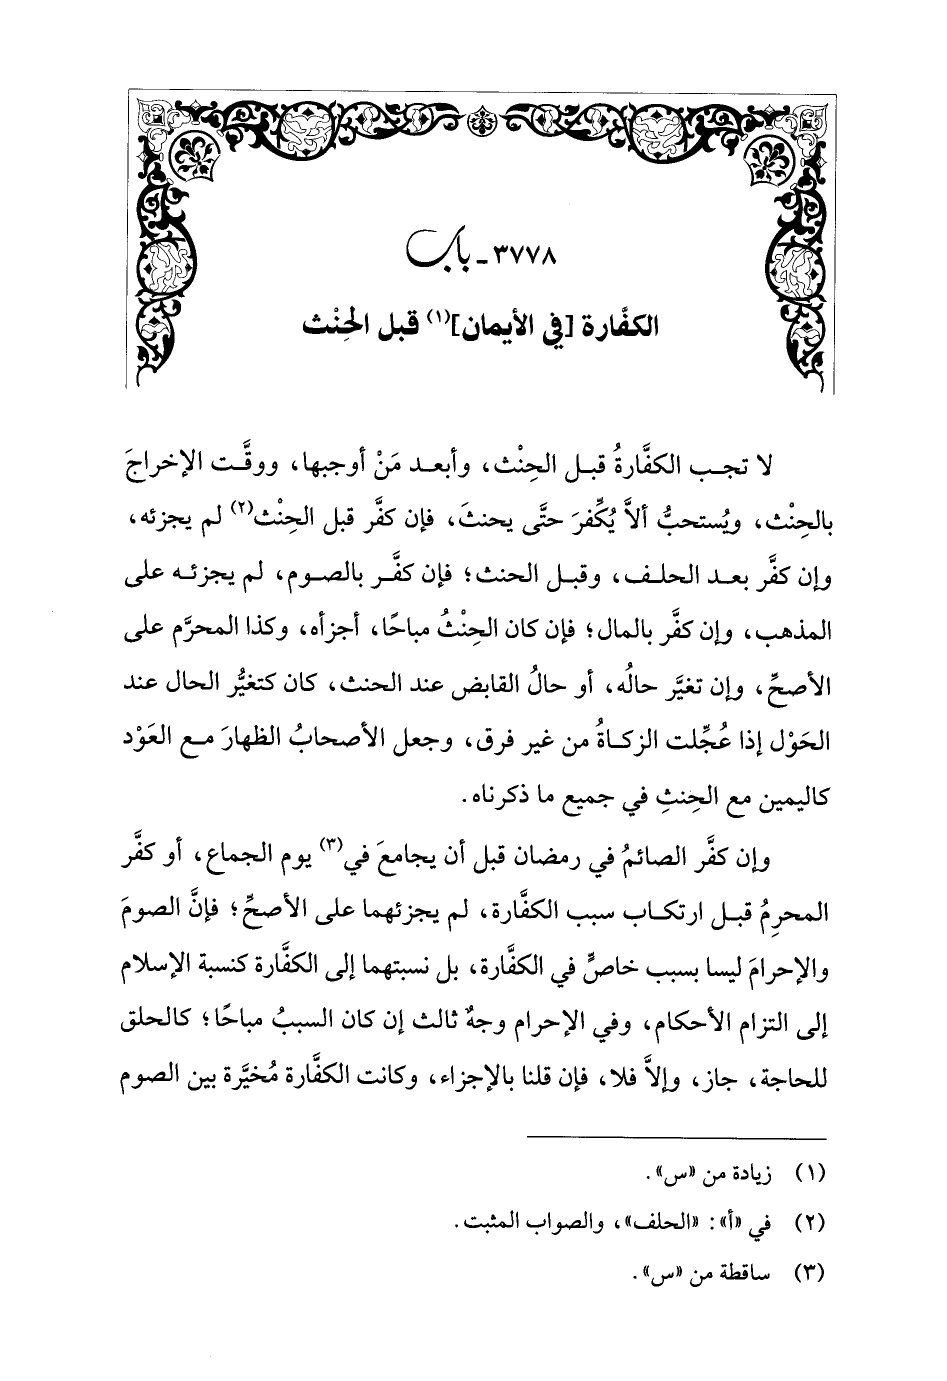 ٣٧٧٨ - باب
الكفَّارة [في الأيمان](١) قبل الحِنْث
لا تجب الكفَّارةُ قبل الحِنْث، وأبعد مَنْ أوجبها، ووقَّت الإخراجَ
بالحِنْث، ويُستحبُّ ألاَّ يُكِّفرَ حتَّى يحنثَ، فإن كفَّر قبل الحِنْث(٢) لم يجزئه،
وإن كفَّر بعد الحلف، وقبل الحنث؛ فإن كفَّر بالصوم، لم يجزئه على
المذهب، وإن كفَّر بالمال؛ فإن كان الحِنْثُ مباحًا، أجزأه، وكذا المحرَّم على
الأصحِّ، وإن تغيَّر حالُه، أو حالُ القابض عند الحنث، كان كتغيُّر الحال عند
الحَوْل إذا عُجِّلت الزكاةُ من غير فرق، وجعل الأصحابُ الظهارَ مع العَوْد
كاليمين مع الحِنثِ في جميع ما ذكرناه.
وإن كفَّر الصائمُ في رمضان قبل أن يجامعَ في(٣) يوم الجماع، أو كفَّر
المحرِمُ قبل ارتكاب سبب الكفَّارة، لم يجزئهما على الأصحِّ؛ فإنَّ الصومَ
والإحرامَ ليسا بسبب خاصٍّ في الكفَّارة، بل نسبتهما إلى الكفَّارة كنسبة الإسلام
إلى التزام الأحكام، وفي الإحرام وجهٌ ثالث إن كان السببُ مباحًا؛ كالحلق
للحاجة، جاز، وإلاَّ فلا، فإن قلنا بالإجزاء، وكانت الكفَّارة مُخيَّرة بين الصوم
(١) زيادة من «س».
(٢) في «أ»: «الحلف»، والصواب المثبت.
(٣) ساقطة من «س».